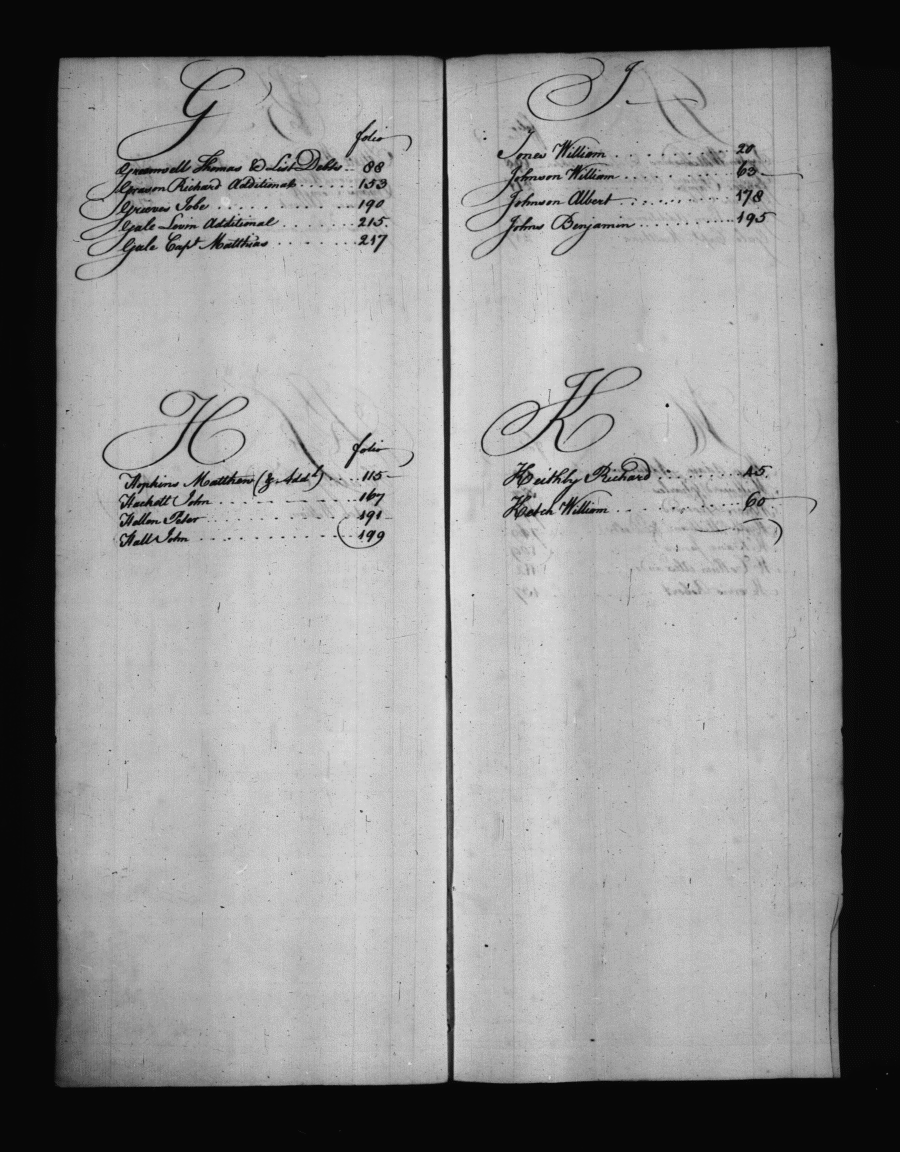 G
folio
Greenwell Thomas & List Debts .. 88
Grason Richard Additional ..... 153
Greeves Jobe ........ 190
Gale Levin Additional ....... 215
Gale Capt Matthias ...... 217
H
folio
Hopkins Matthew (& Addl) ... 115
Hackett John .......... 167
Hellen Peter .......... 191
Hall John ............ 199
J
Jones William ........ 20
Johnson William ........ 63
Johnson Albert ........ 178
Johns Benjamin ........ 195
K
Keithly Richard ...... 45
Ketch William ........ 60